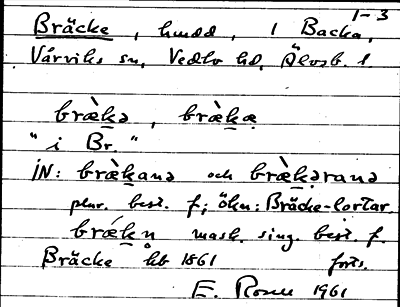 1-3
Bräcke, hmdd, i Backa,
Vårviks sn, Vedbo hd, Älvsb. l.
bræ̀k̲ə, bræ̀k̲æ
"i Br."
iN: bræ̀k̲anə och bræ̀k̲əranə
plur. best. f; ökn: Bräcke-lortar.
bræ̀k̲n̥ mask. sing. best. f.
Bräcke hb 1861 forts.
E. Rosen 1961